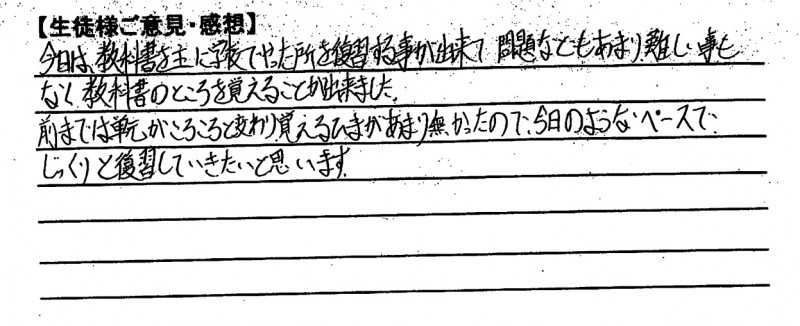 【生徒様ご意見・感想】
今日は、教科書を主に学校でやった所を復習する事が出来て 問題などもあまり難しい事も
なく教科書のところを覚えることが出来ました。
前までは単元がころころと変わり、覚えるひまがあまり無かったので、今日のようなペースで、
じっくりと復習していきたいと思います。